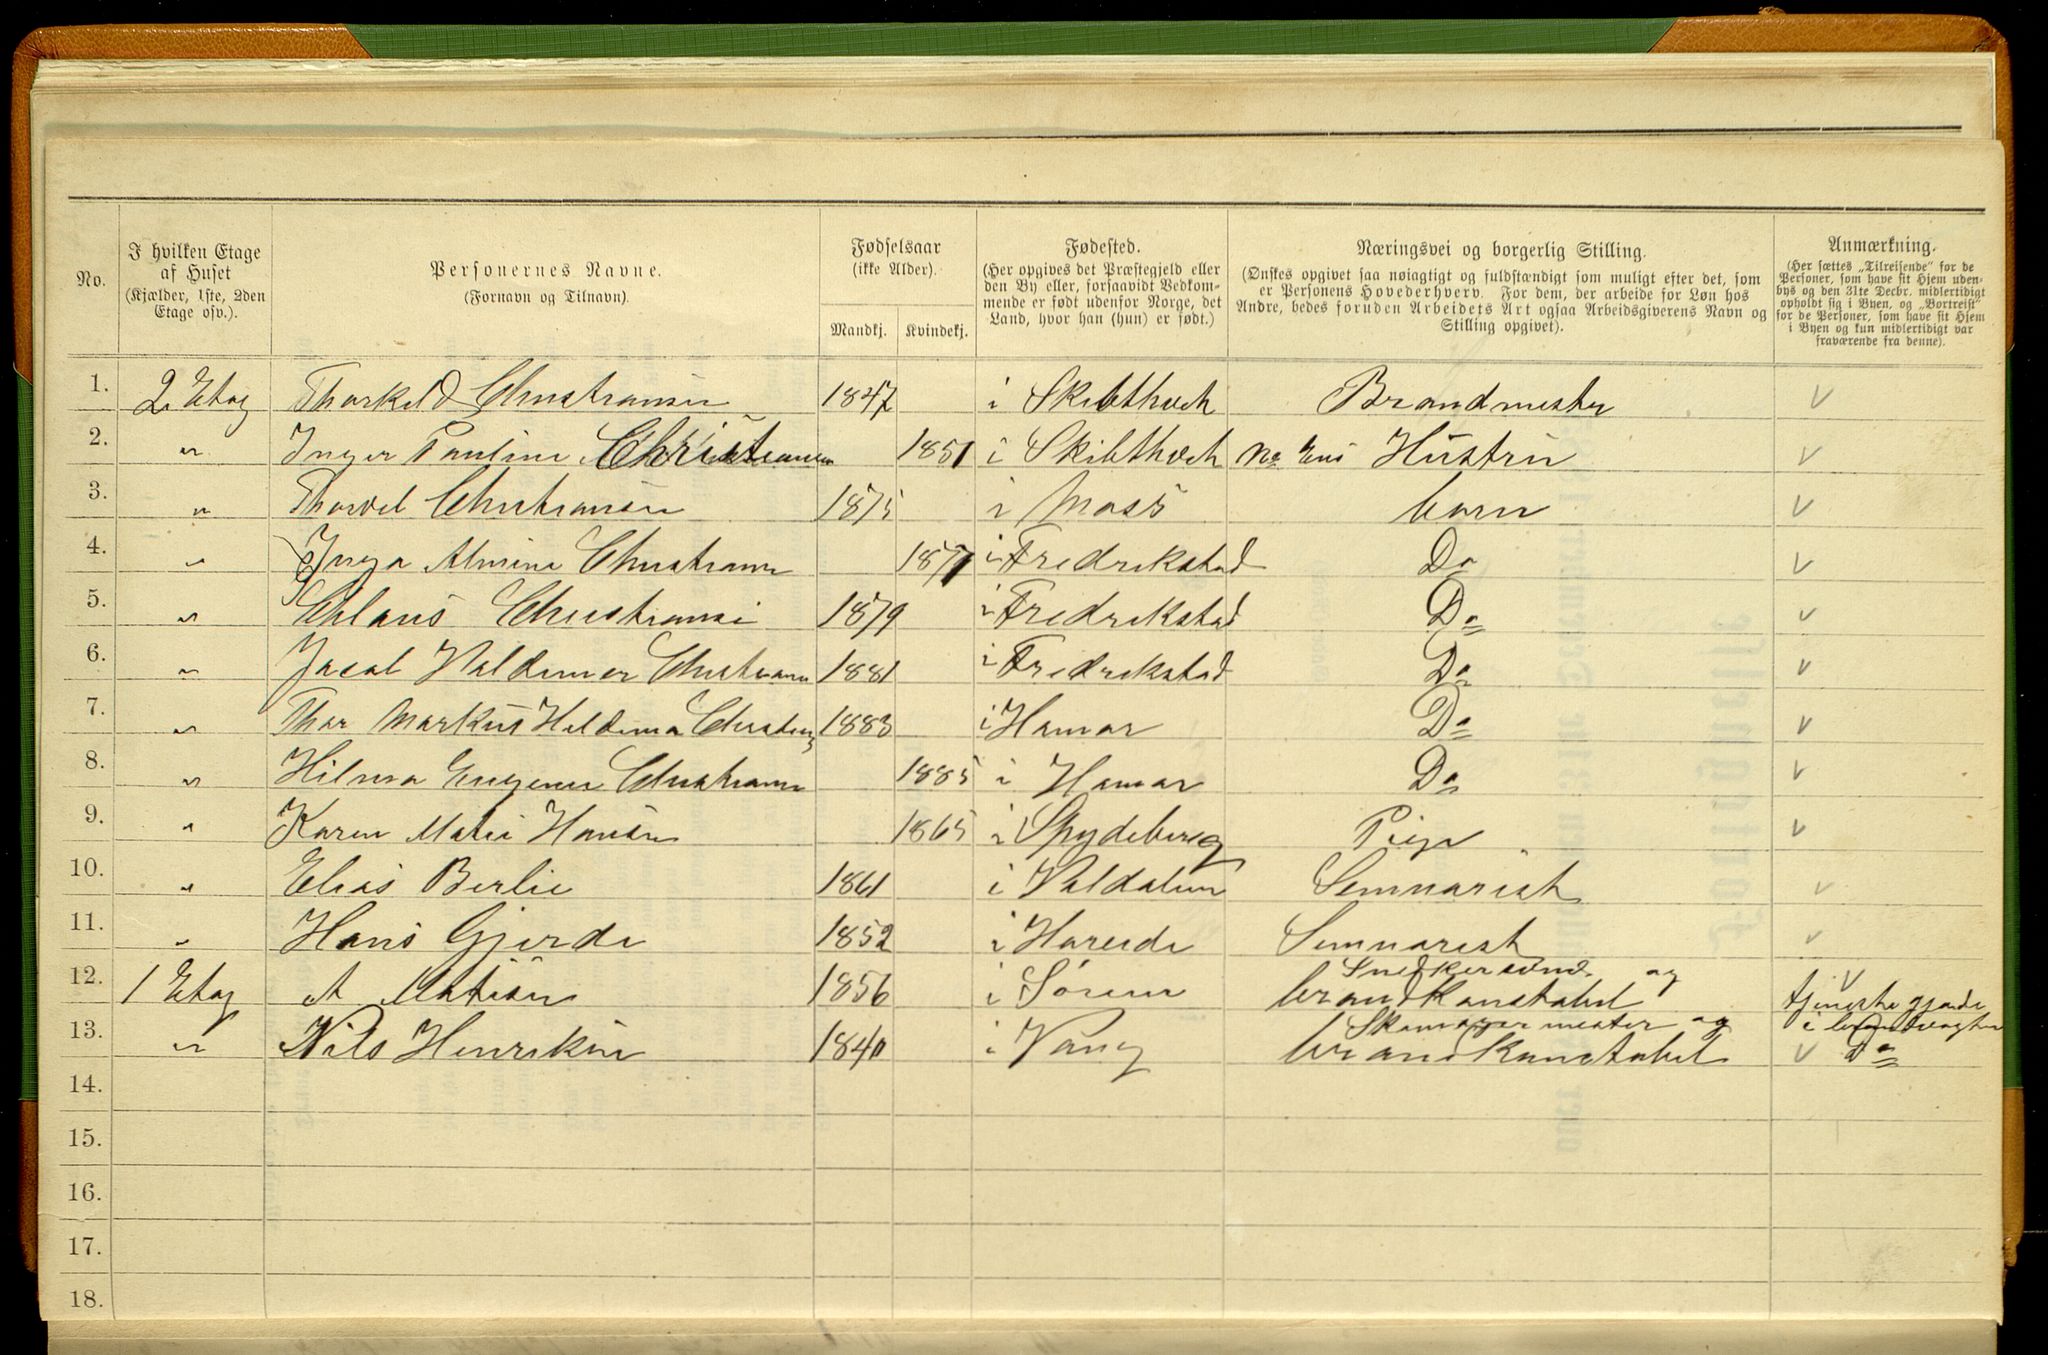 No.
I hvilken Etage af Huset
(Kjælder, 1ste, 2den Etage osv.).
Personernes Navne.
(Fornavn og Tilnavn).
Fødselsaar
(ikke Alder).
Mandkj. Kvindekj.
Fødested.
(Her opgives det Præstegjeld eller
den By eller, forsaavidt Vedkom-
mende er født udenfor Norge, det
Land, hvor han (hun) er født.)
Næringsvei og borgerlig Stilling.
(Ønskes opgivet saa nøiagtigt og fuldstændigt som muligt efter det, som
er Personens Hovederhverv. For dem, der arbeide for Løn hos
Andre, bedes foruden Arbeidets Art ogsaa Arbeidsgiverens Navn og
Stilling opgivet).
Anmærkning.
(Her sættes „Tilreisende" for de
Personer, som have sit Hjem uden-
bys og den 31te Decbr. midlertidigt
opholdt sig i Byen, og „Bortreist"
for de Personer, som have sit Hjem
i Byen og kun midlertidigt var
fraværende fra denne).
1. 2 Etag Thorkild Christiansen 1847 i Skibthvet Brandmester
2. " Inger Pauline Christiansen 1851 i Skibthvet Hustru
3. " Thorvel Christiansen 1875 i Moss barn
4. " Inga Almine Christiansen 1877 i Fredrikstad Do
5. " Christiansen 1879 i Fredrikstad Do
6. " Jacob Valdemar Christiansen 1881 i Fredrikstad Do
7. " Thor Markus Christians 1883 i Hamar Do
8. " Hilma Eugenie Christiansen 1885 i Hamar Do
9. " Karen Matie Hansen 1865 i Spydeberg Pige
10. " Elias Berlie 1861 i Seminarist
11. " Hans Gjerde 1852 i Hareide Seminarist
12. 1 Etag A Matisen 1856 i Sørum Snedkersvend og
brandkonstabel tjeneste gjørde
i brandvagten
13. " Nils Henriksen 1840 i Vang mester og
brandkonstabel Do
14.
15.
16.
17.
18.